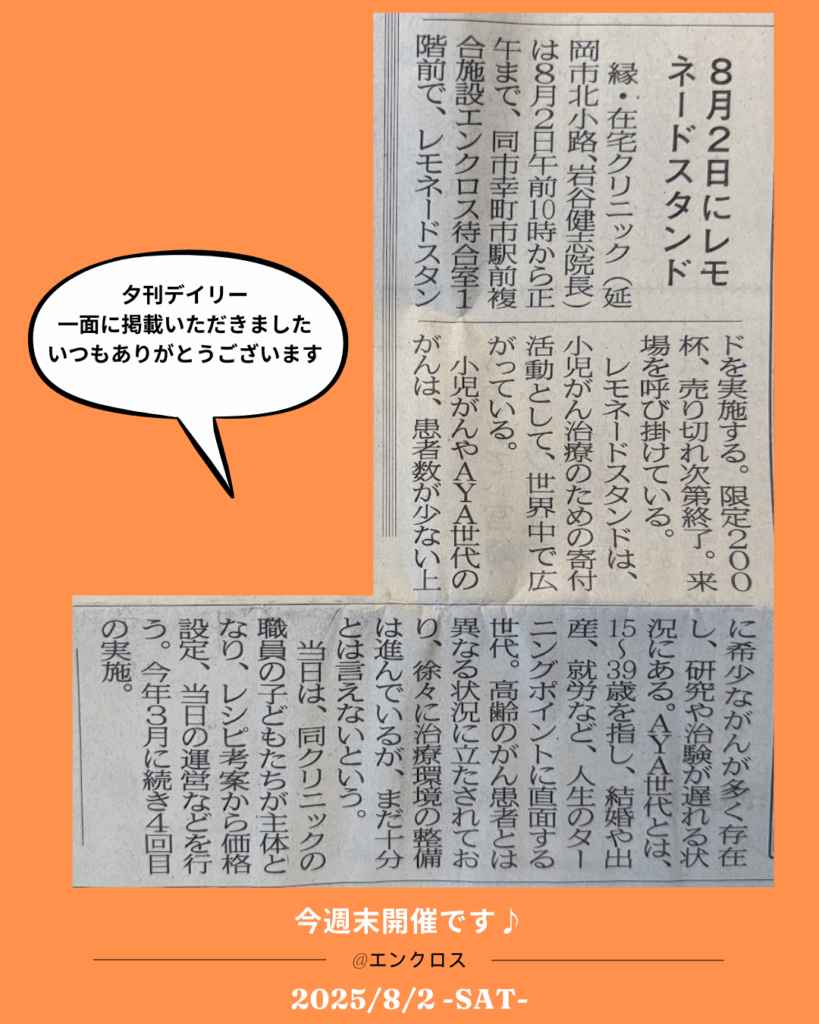 8月2日にレモ
ネードスタンド
縁・在宅クリニック（延
岡市北小路、岩谷健志院長）
は8月2日午前10時から正
午まで、同市幸町市駅前複
合施設エンクロス待合室1
階前で、レモネードスタン
ドを実施する。限定200
杯、売り切れ次第終了。来
場を呼び掛けている。
レモネードスタンドは、
小児がん治療のための寄付
活動として、世界中で広
がっている。
小児がんやAYA世代の
がんは、患者数が少ない上
に希少ながんが多く存在
し、研究や治験が遅れる状
況にある。AYA世代とは、
15～39歳を指し、結婚や出
産、就労など、人生のター
ニングポイントに直面する
世代。高齢のがん患者とは
異なる状況に立たされてお
り、徐々に治療環境の整備
は進んでいるが、まだ十分
とは言えないという。
当日は、同クリニックの
職員の子どもたちが主体と
なり、レシピ考案から価格
設定、当日の運営などを行
う。今年3月に続き4回目
の実施。
夕刊デイリー
一面に掲載いただきました
いつもありがとうございます
今週末開催です♪
@エンクロス
2025/8/2 -SAT-